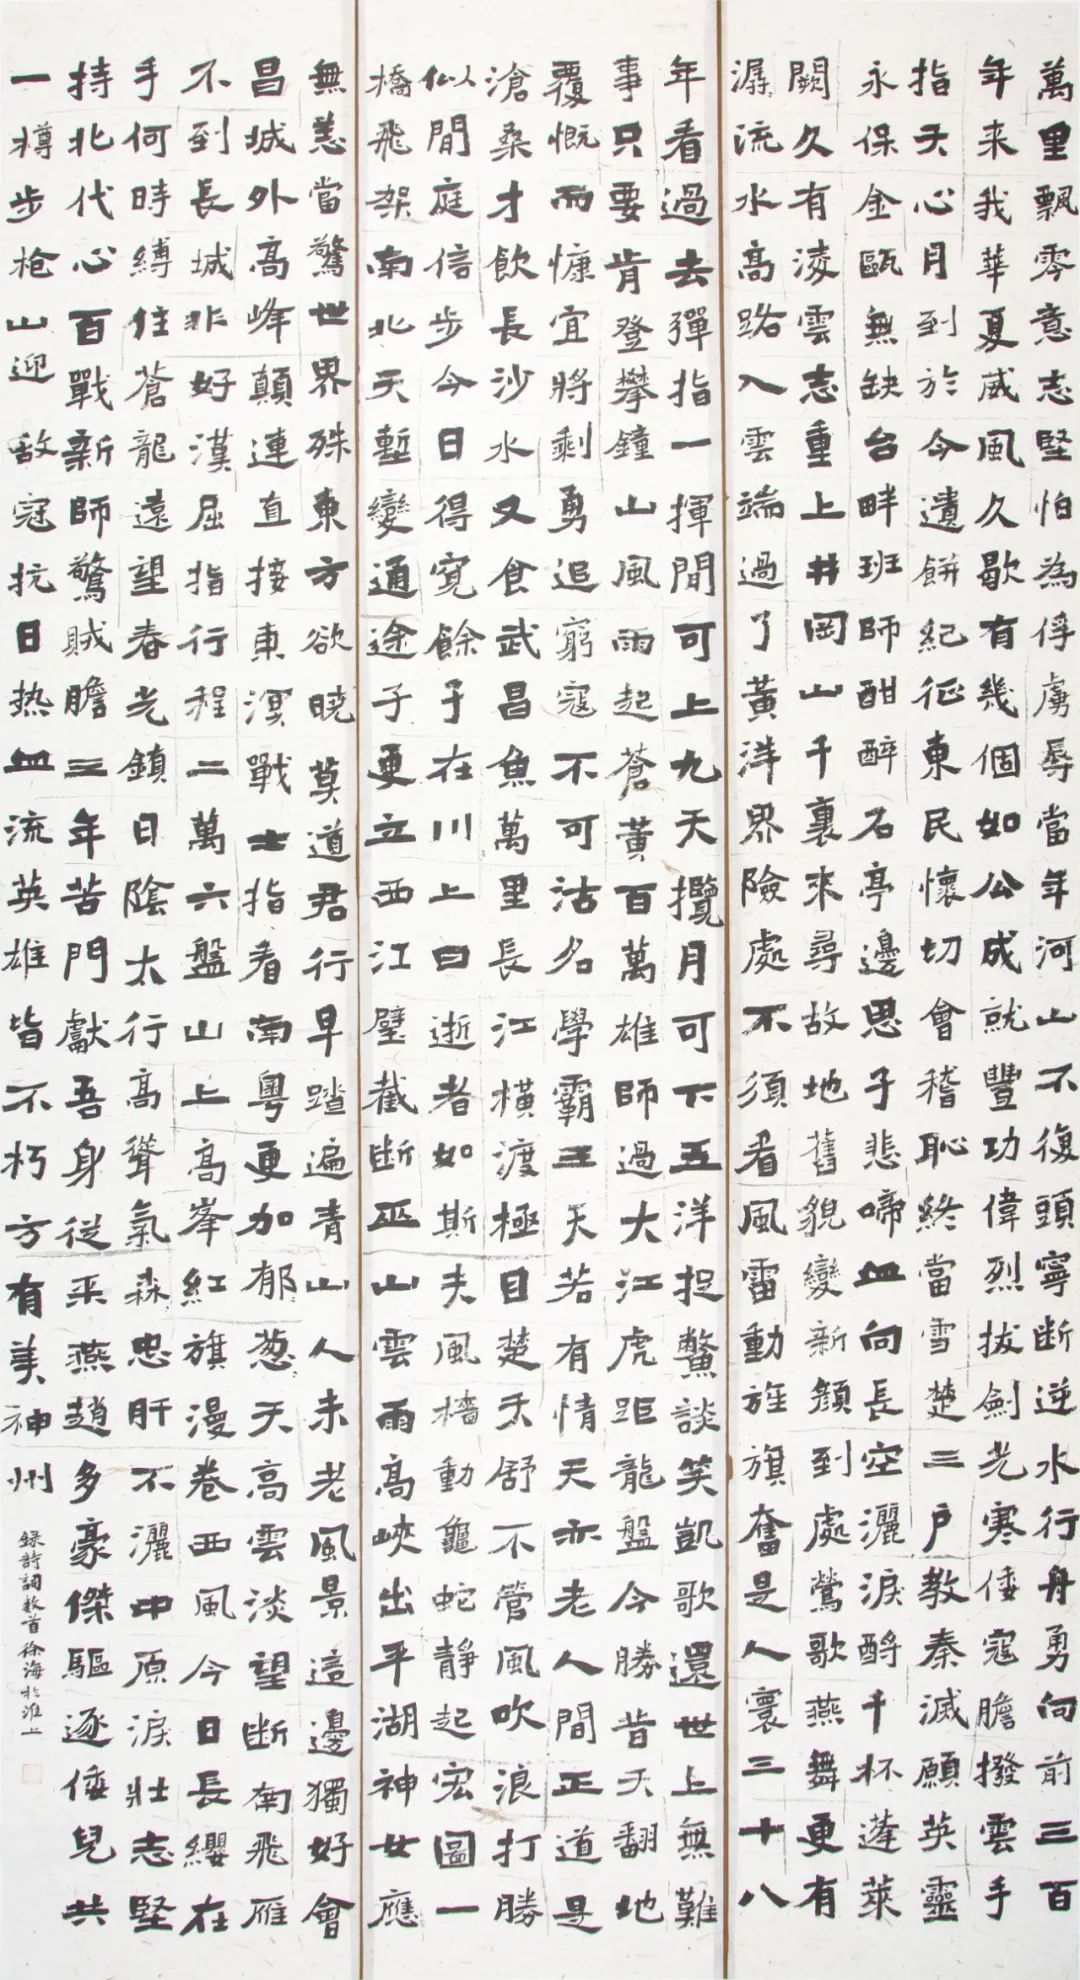 萬里飄零意志堅怕為俘虜辱當年河山不復頭寧断逆水行舟勇向前三百
年来我華夏威風久歇有幾個如公成就豐功偉烈拔劍光寒倭寇膽撥雲手
指天心月到於今遺餅紀征東民懷切會稽恥終當雪楚三户教秦滅願英靈
永保金甌無缺台畔班師酣醉石亭邊思子悲啼血向長空灑淚酹千杯蓬萊
闕久有凌雲志重上井岡山千裏來尋故地舊貌變新顏到處鶯歌燕舞更有
潺流水高路入雲端過了黃洋界險處不須看風雷動旌旗奮是人寰三十八
年看過去彈指一揮間可上九天攬月可下五洋捉鱉談笑凱歌還世上無難
事只要肯登攀鐘山風雨起蒼黃百萬雄師過大江虎距龍盤今勝昔天翻地
覆慨而慷宜將剩勇追窮寇不可沽名學霸王天若有情天亦老人間正道是
滄桑才飲長沙水又食武昌魚萬里長江橫渡極目楚天舒不管風吹浪打勝
似間庭信步今日得寬餘子在川上曰逝者如斯夫風檣動龜蛇靜起宏圖一
橋飛架南北天塹變通途子更立西江壁截斷巫山雲雨高峽出平湖神女應
無恙當驚世界殊東方欲曉莫道君行早踏遍青山人未老風景這邊獨好會
昌城外高峰顛連直接東溟戰士指看南粵更加郁葱天高雲淡望断南飛雁
不到長城非好漢屈指行程二萬六盤山上高峯紅旗漫卷西風今日長纓在
手何時縛住蒼龍遠望春光鎮日陰太行高聳氣森忠肝不灑中原淚壯志堅
持北代心百戰新師驚賊膽三年苦鬥獻吾身從来燕趙多豪傑驅逐倭兒共
一樽步槍山迎敵寇抗日热血流英雄皆不朽方有美神州
録詩詞數首徐海於淮上